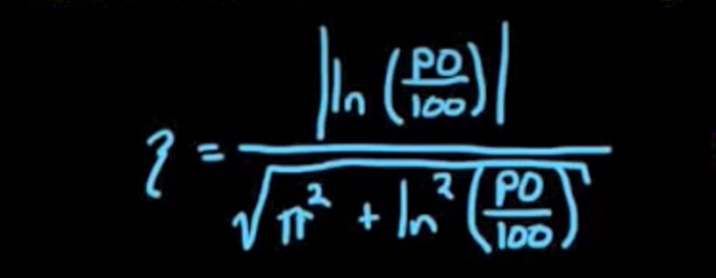 ζ = |ln (PO/100)| / √(π² + ln² (PO/100))